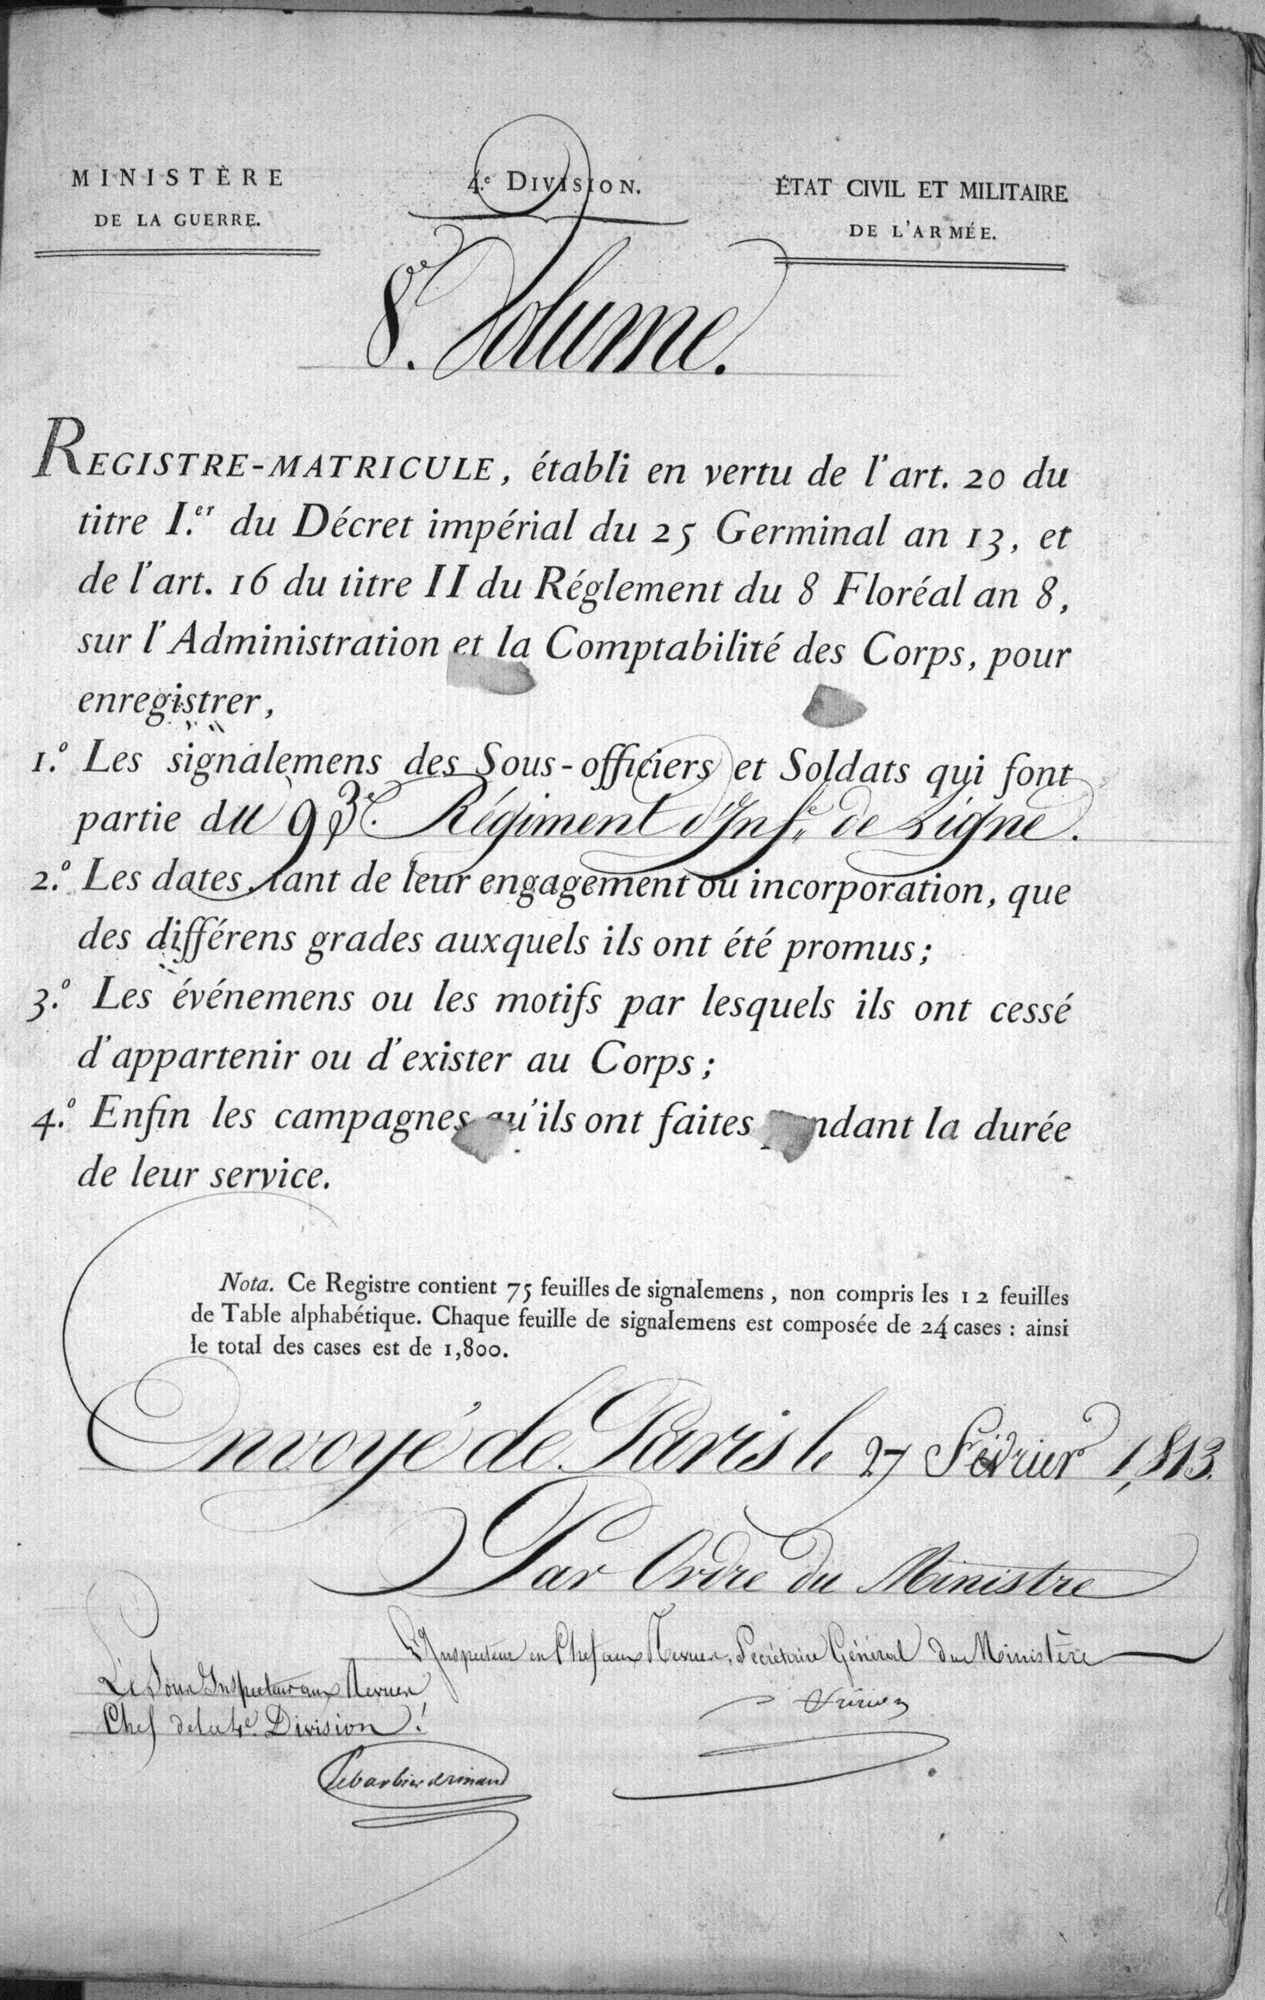 MINISTÈRE
DE LA GUERRE.
4.e DIVISION.
ÉTAT CIVIL ET MILITAIRE
DE L'ARMÉE.
8.e Volume.
REGISTRE-MATRICULE, établi en vertu de l'art. 20 du
titre I.er du Décret impérial du 25 Germinal an 13, et
de l'art. 16 du titre II du Réglement du 8 Floréal an 8,
sur l'Administration et la Comptabilité des Corps, pour
enregistrer,
1.º Les signalemens des Sous-officiers et Soldats qui font
partie du 93.e Régiment d'Inf.ie de Ligne.
2.º Les dates, tant de leur engagement ou incorporation, que
des différens grades auxquels ils ont été promus;
3.º Les événemens ou les motifs par lesquels ils ont cessé
d'appartenir ou d'exister au Corps;
4.º Enfin les campagnes qu'ils ont faites pendant la durée
de leur service.
Nota. Ce Registre contient 75 feuilles de signalemens, non compris les 12 feuilles
de Table alphabétique. Chaque feuille de signalemens est composée de 24 cases : ainsi
le total des cases est de 1,800.
Envoyé de Paris le 27 Février 1,813.
Par Ordre du Ministre
L'Inspecteur en Chef aux Revues, Secrétaire Général du Ministère
Le Sous Inspecteur aux Revues
Chef de la 4.e Division.